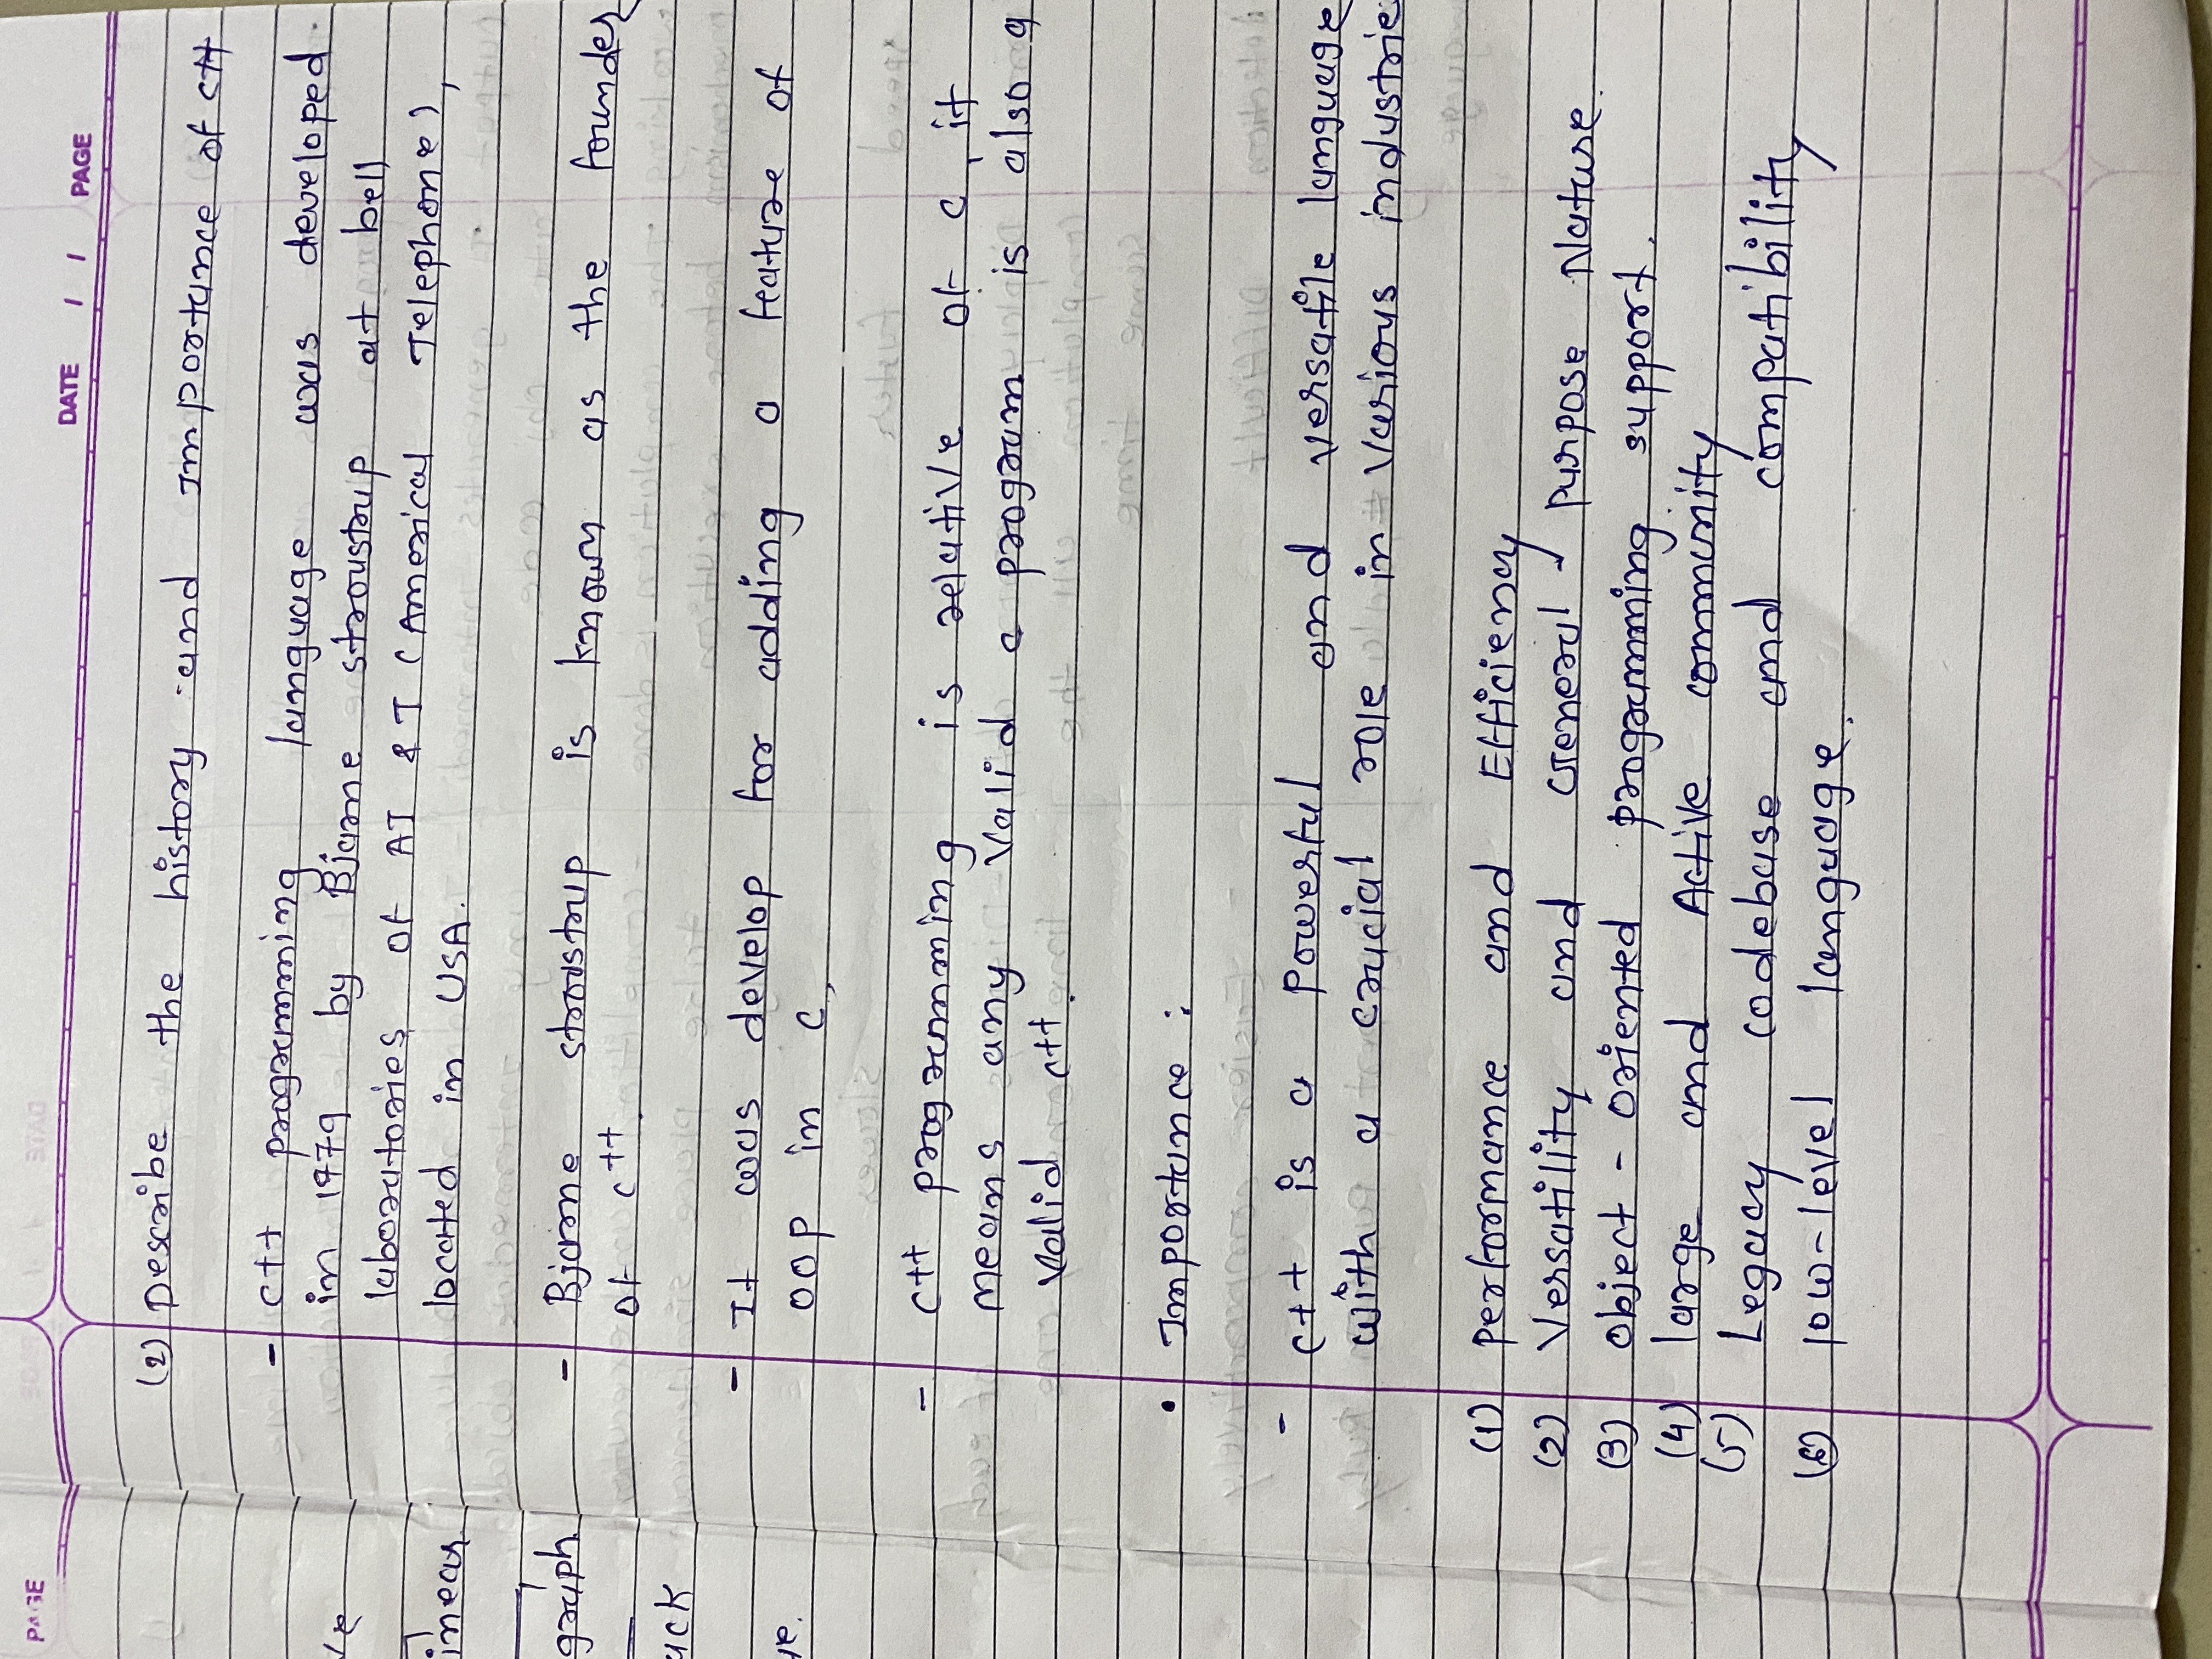 PAGE
DATE / / PAGE
(2) Describe the history and Importance of C++
- C++ programming language was developed
in 1979 by Bjarne stroustrup at bell
laboratories of AT & T (Americal Telephone),
located in USA.
- Bjarne stroustrup is known as the founder
of C++.
- It was develop for adding a feature of
OOP in C,
- C++ programming is relative of C, it
means any valid c program is also a
valid C++.
• Importance :
- C++ is a powerful and versatile language
with a crucial role in various industrie
(1) performance and Efficiency
(2) Versatility and General - purpose Nature.
(3) object - oriented programming support.
(4) large and Active community
(5) Legacy codebase and compatibility
(6) low-level language.
inear
graph